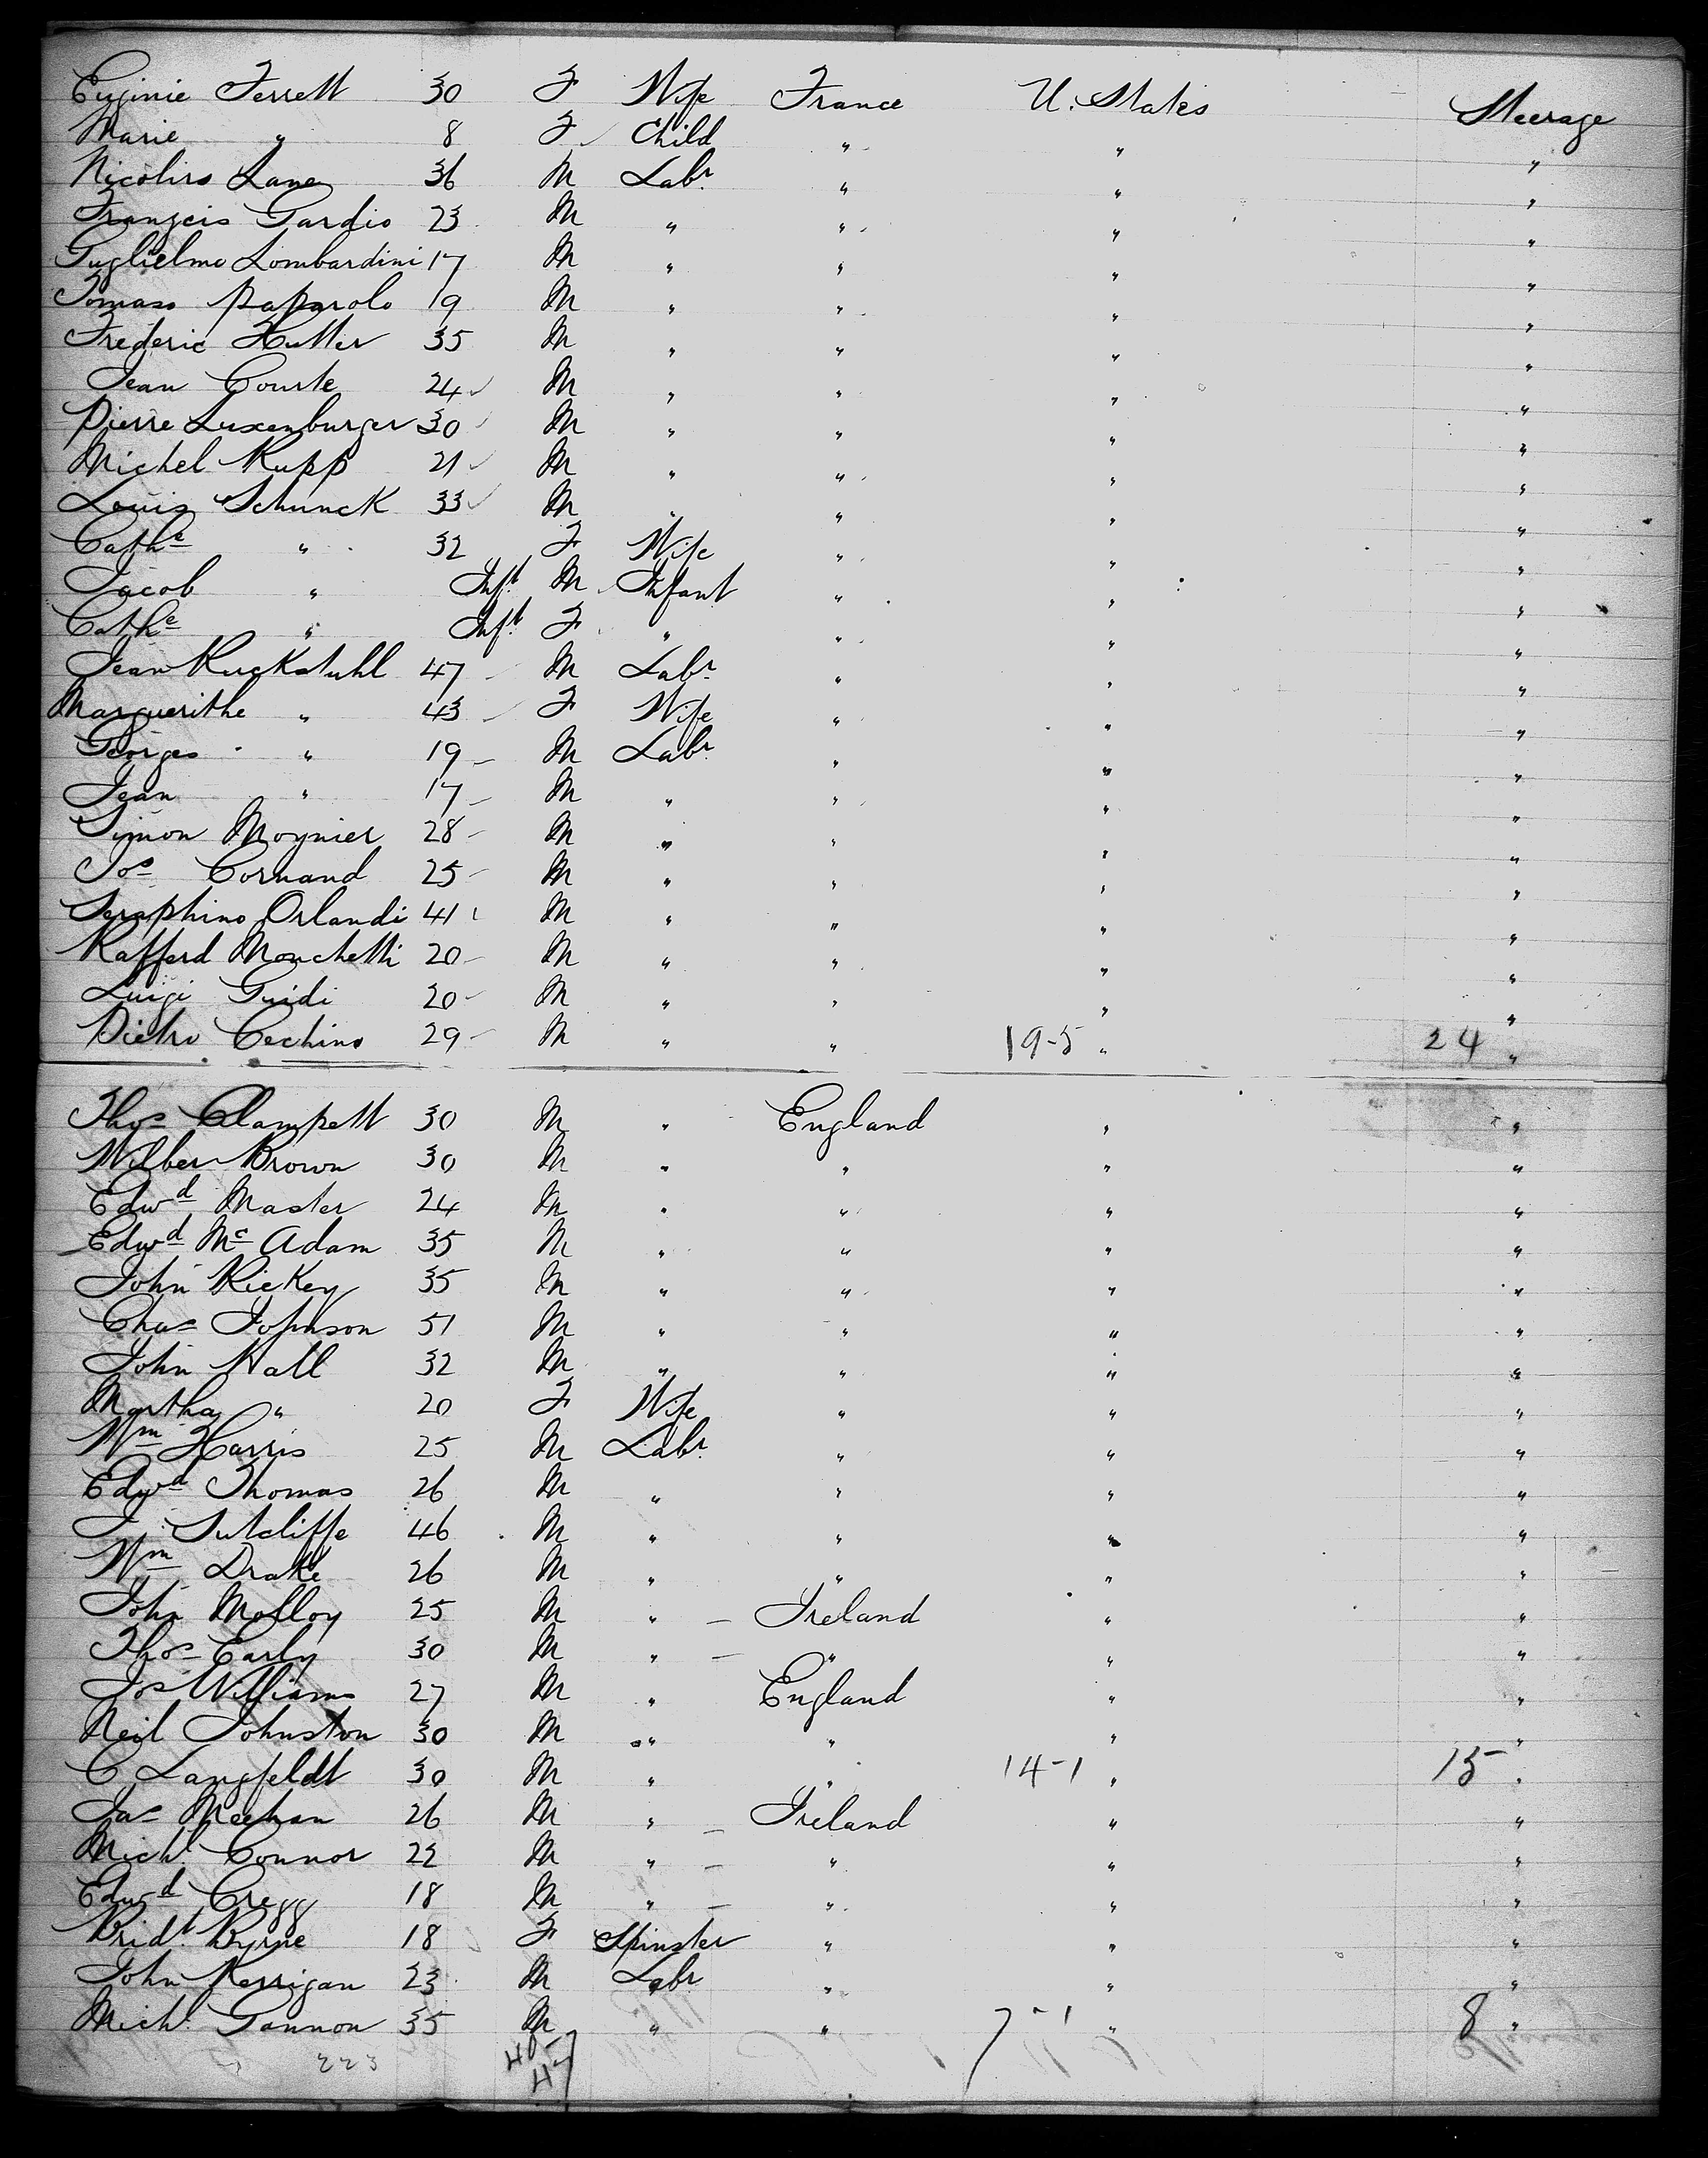 Euginie Ferrett 30 F Wife France U. States Steerage
Marie " 8 F Child " " "
Nicolirs Lane 36 M Labr " " "
Franzcis Gardio 23 M " " " "
Guglielmo Lombardini 17 M " " " "
Tomaso Paparolo 19 M " " " "
Frederic Hutter 35 M " " " "
Jean Courte 24 M " " " "
Pierre Luxenburger 30 M " " " "
Michel Rupp 21 M " " " "
Louis Schunck 33 M " " " "
Cathe " 32 F Wife " " "
Jacob " Inft M Infant " " "
Cathe " Inft F " " " "
Jean Ruckstuhl 47 M Labr " " "
Marguerithe " 43 F Wife " " "
Georges " 19 M Labr " " "
Jean " 17 M " " " "
Simon Moynier 28 M " " " "
Jos Cornand 25 M " " " "
Seraphino Orlandi 41 M " " " "
Rafferd Monchetti 20 M " " " "
Luigi Guidi 20 M " " " "
Pietro Cechino 29 M " " 19-5 " 24 "
Thos Clampett 30 M " England " "
Wilber Brown 30 M " " " "
Edwd Master 24 M " " " "
Edwd Mc Adam 35 M " " " "
John Rickey 35 M " " " "
Chas Johnson 51 M " " " "
John Hall 32 M " " " "
Martha " 20 F Wife " " "
Wm Harris 25 M Labr " " "
Edwd Thomas 26 M " " " "
J. Sutcliffe 46 M " " " "
Wm Drake 26 M " " " "
John Molloy 25 M " – Ireland " "
Thos Early 30 M " – " " "
Jos Williams 27 M " England " "
Neil Johnston 30 M " " " "
C Langfeldt 30 M " " 14-1 " 15 "
Jas Meehan 26 M " – Ireland " "
Michl Connor 22 M " – " " "
Edwd Cregg 18 M " – " " "
Bridt Byrne 18 F Spinster " " "
John Kerrigan 23 M Labr " " "
Michl Gannon 35 M " " 7-1 " 8 "
223 40-7
47